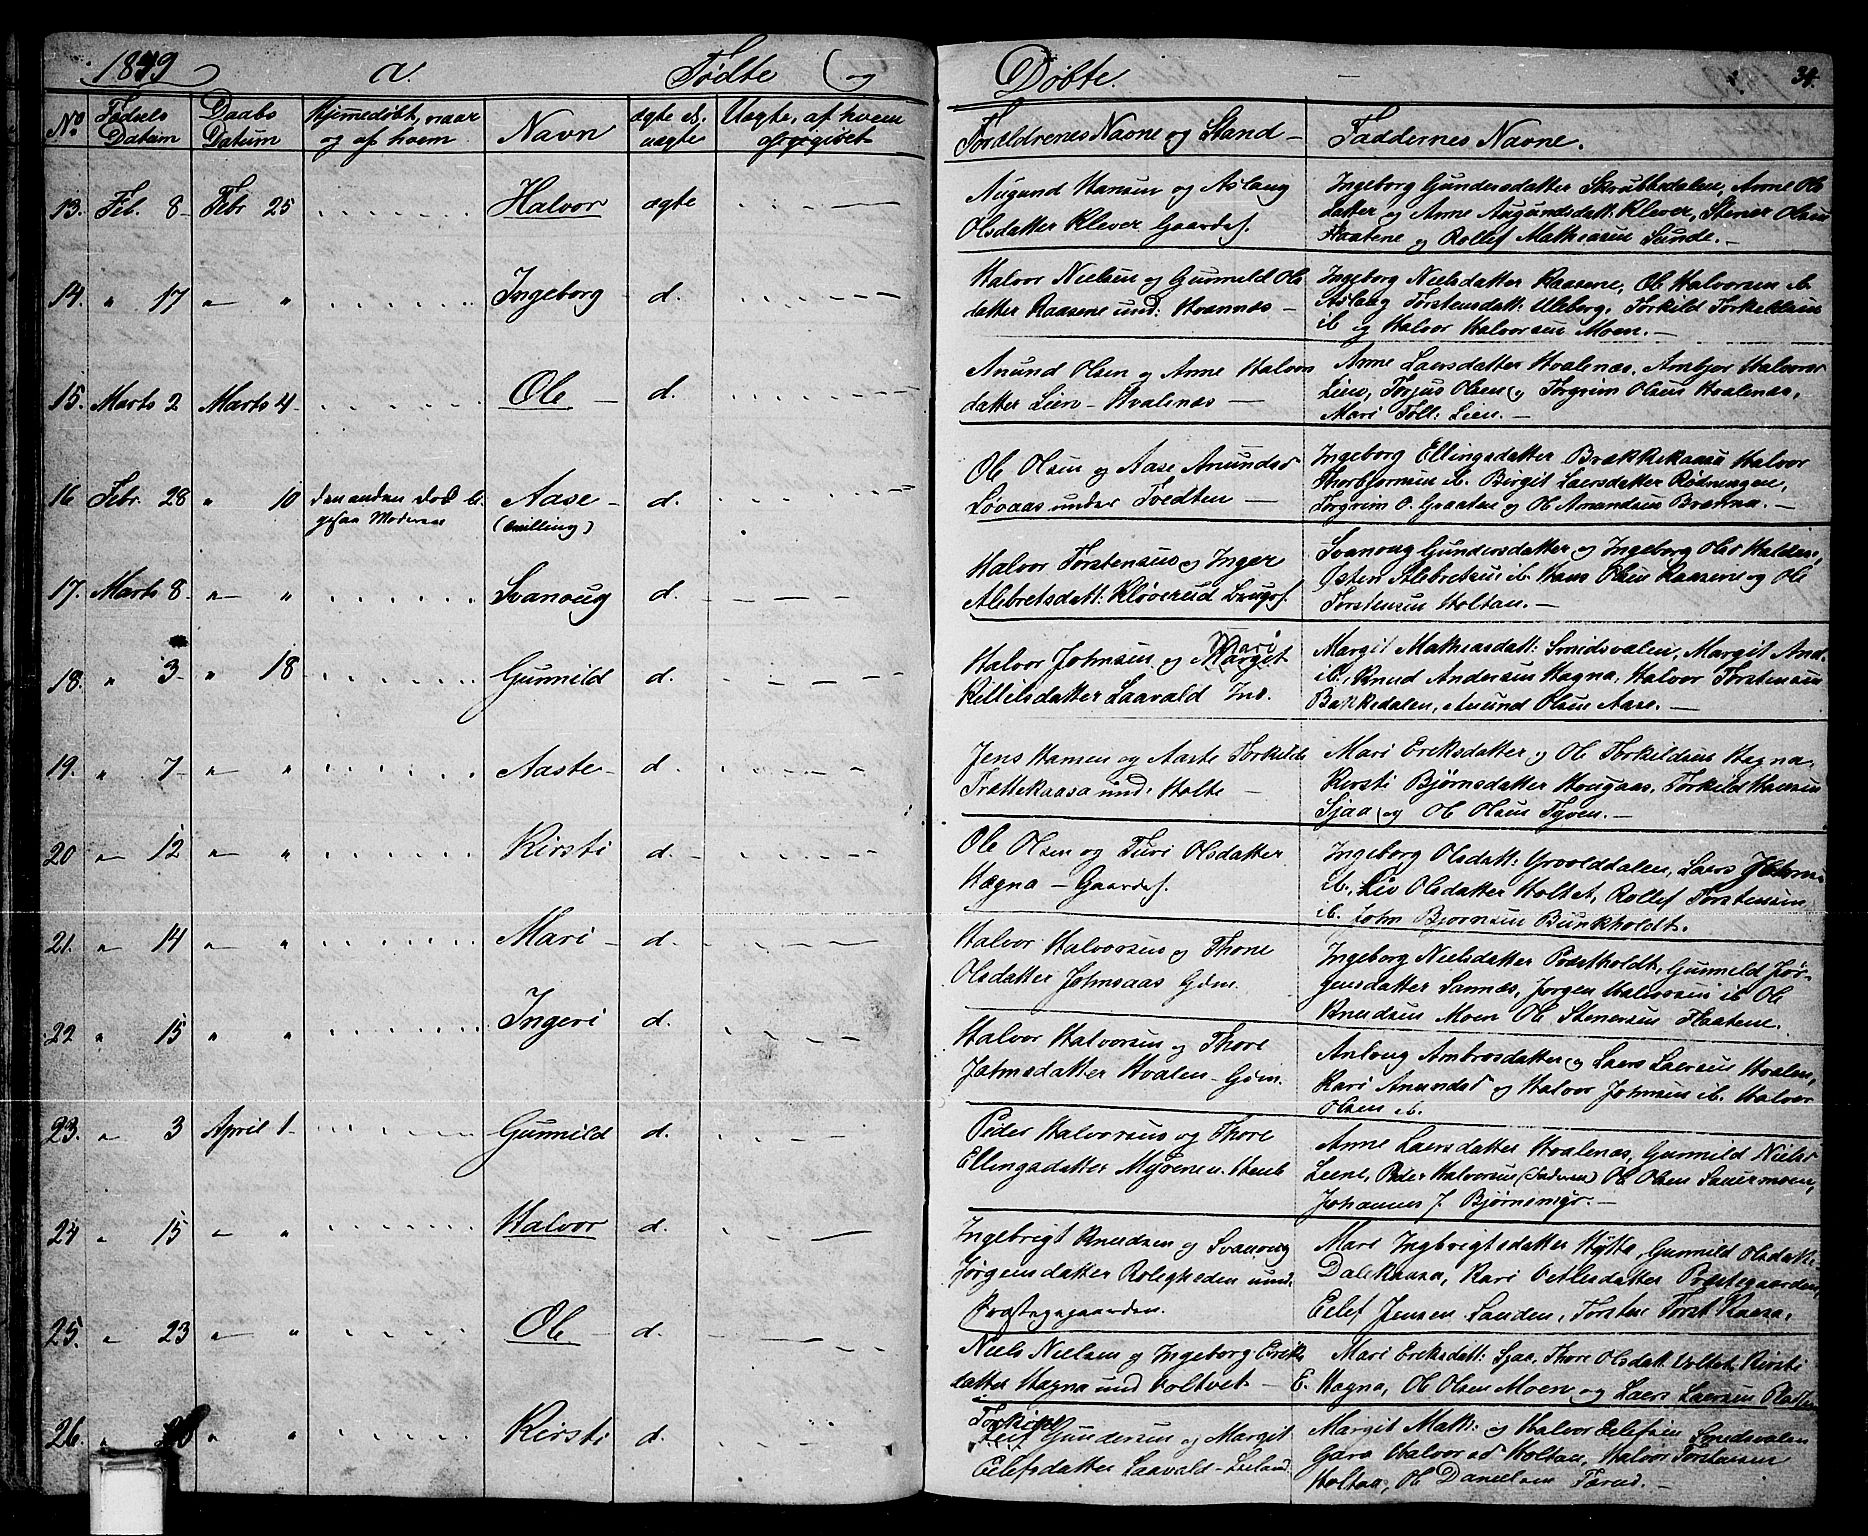 1849 a. Fødte og Døbte. 34.
No Fødsels Datum Daabs Datum Hjemmedøbt, naar og af hvem Navn ægte el. uægte Uægte, af hvem opgivet Forældrenes Navne og Stand Faddernes Navne.
13. Feb. 8 Febr 25 Halvor ægte
Augund Hansen og Aslaug
Olsdatter Klever Gaardef.
Ingeborg Gundersdatter Skrubbedalen, Anne Ols
datter og Anne Augundsdatt: Klever, Stener Olsen
Haatene og Rollef Mathiasen Sunde.
14. " 17 " " Ingeborg d.
Halvor Nielsen og Gunnild Ols
datter Raasene und: Hvannæs
Ingeborg Nielsdatter Raasene, Ole Halvorsen ib.
Aslaug Torstensdatt: Uleberg, Torkild Torkeldsen
ib og Halvor Halvorsen Moen.
15. Marts 2 Marts 4 Ole d.
Anund Olsen og Anne Halvors
datter Lien Hvalenæs
Anne Laersdatter Hvalenæs, Ambjør Halvorsd
Liene, Torjus Olsen og Torgrim Olsen Hvalenæs,
Mari Toll: Lien.
16 Febr. 28 " 10 den anden død b. Aase d.
(tvilling)
Ole Olsen og Aase Anundsd
Løvaas under Tvedten
Ingeborg Ellingsdatter Brækkekaasa Halvor
Thorbjørnsen ib. Birgit Laersdatter Rødningen,
Torgrim O. Graaten og Ole Amundsen Brænna.
17. Marts 8 " " Svanoug d.
Halvor Torstensen og Inger
Alebretsdatt: Kløverud Brugef.
Svanoug Gundersdatter og Ingeborg Olsd Halden,
Østen Alebretsen ib. Hans Olsen Raasene og Ole
Torstensen Holtan.
18. " 3 " 18 Gunnild d.
Mari
Halvor Johnsen og Margit
Killilsdatter Laavald Ins.
Margit Mathiasdatt: Smidsvalen, Margit And.
ib., Knud Andersen Hagna, Halvor Torstensen
Bakkedalen, Anund Olsen Aase.
19. " 7 " " Aaste d.
Jens Hansen og Aaste Torkilds
Trættekaasa und: Holte
Mari Eriksdatter og Ole Torkildsen Hagna
Kirsti Bjørnsdatter Hougaas, Torkild Hansen
Sjaa og Ole Olsen Tyven.
20 " 12 " " Kirsti d.
Ole Olsen og Turi Olsdatter
Hægna Gaardef.
Ingeborg Olsdatt: Grvolddalen, Laers
ib., Liv Olsdatter Holtet, Rollef Torstensen
ib. John Bjørnsen Bunkholdt.
21. " 14 " " Mari d.
Halvor Halvorsen og Thone
Olsdatter Johnsaas Gdm.
Ingeborg Nielsdatter Præstholdt, Gunnild Jør
gensdatter Sannæs, Jørgen Halvorsen ib Ole
Knudsen Moen Ole Stenersen Haatene.
22 " 15 " " Ingeri d.
Halvor Halvorsen og Thore
Johnsdatter Hvalen Gdm.
Anloug Ambrosdatter og Laers Laersen Hvalen,
Kari Anundsd og Halvor Johnsen ib. Halvor
Olsen ib.
23. " 3 April 1 Gunnild d.
Peder Halvorsen og Thore
Ellingsdatter Myrene
Anne Laersdatter Hvalenæs, Gunnild Nielsd
Liene, Peder Halvorsen (Faderen) Ole Olsen Sauermoen,
Johannes J. Bjørnemyr.
24 " 15 " " Halvor d.
Ingebrigt Knudsen og Svanoug
Jørgensdatter Roligheden und.
Præstegaarden.
Mari Ingbrigtsdatter Hytta, Gunnild Olsdatt.
Dalekaasa, Kari Vetlesdatter Prestegaarden,
Eilef Jensen Sanden, Torsten Torst. Kaasa.
25. " 23 " " Ole d.
Niels Nielsen og Ingeborg Eriks
datter Hægna und Holtvet
Mari Eriksdatt: Sjaa, Thore Olsdatt. Holtet, Kirsti
E. Hagna, Ole Olsen Moen og Laers Laersen
26. " 28 " " Kirsti d.
Torkild
Gundersen og Margit
Eilefsdatter Laavald
Margit Math: og Halvor Eilefsen Smidsvalen
Halvorsd Holtan, Halvor Torstensen
Holtaa, Ole Danielsen